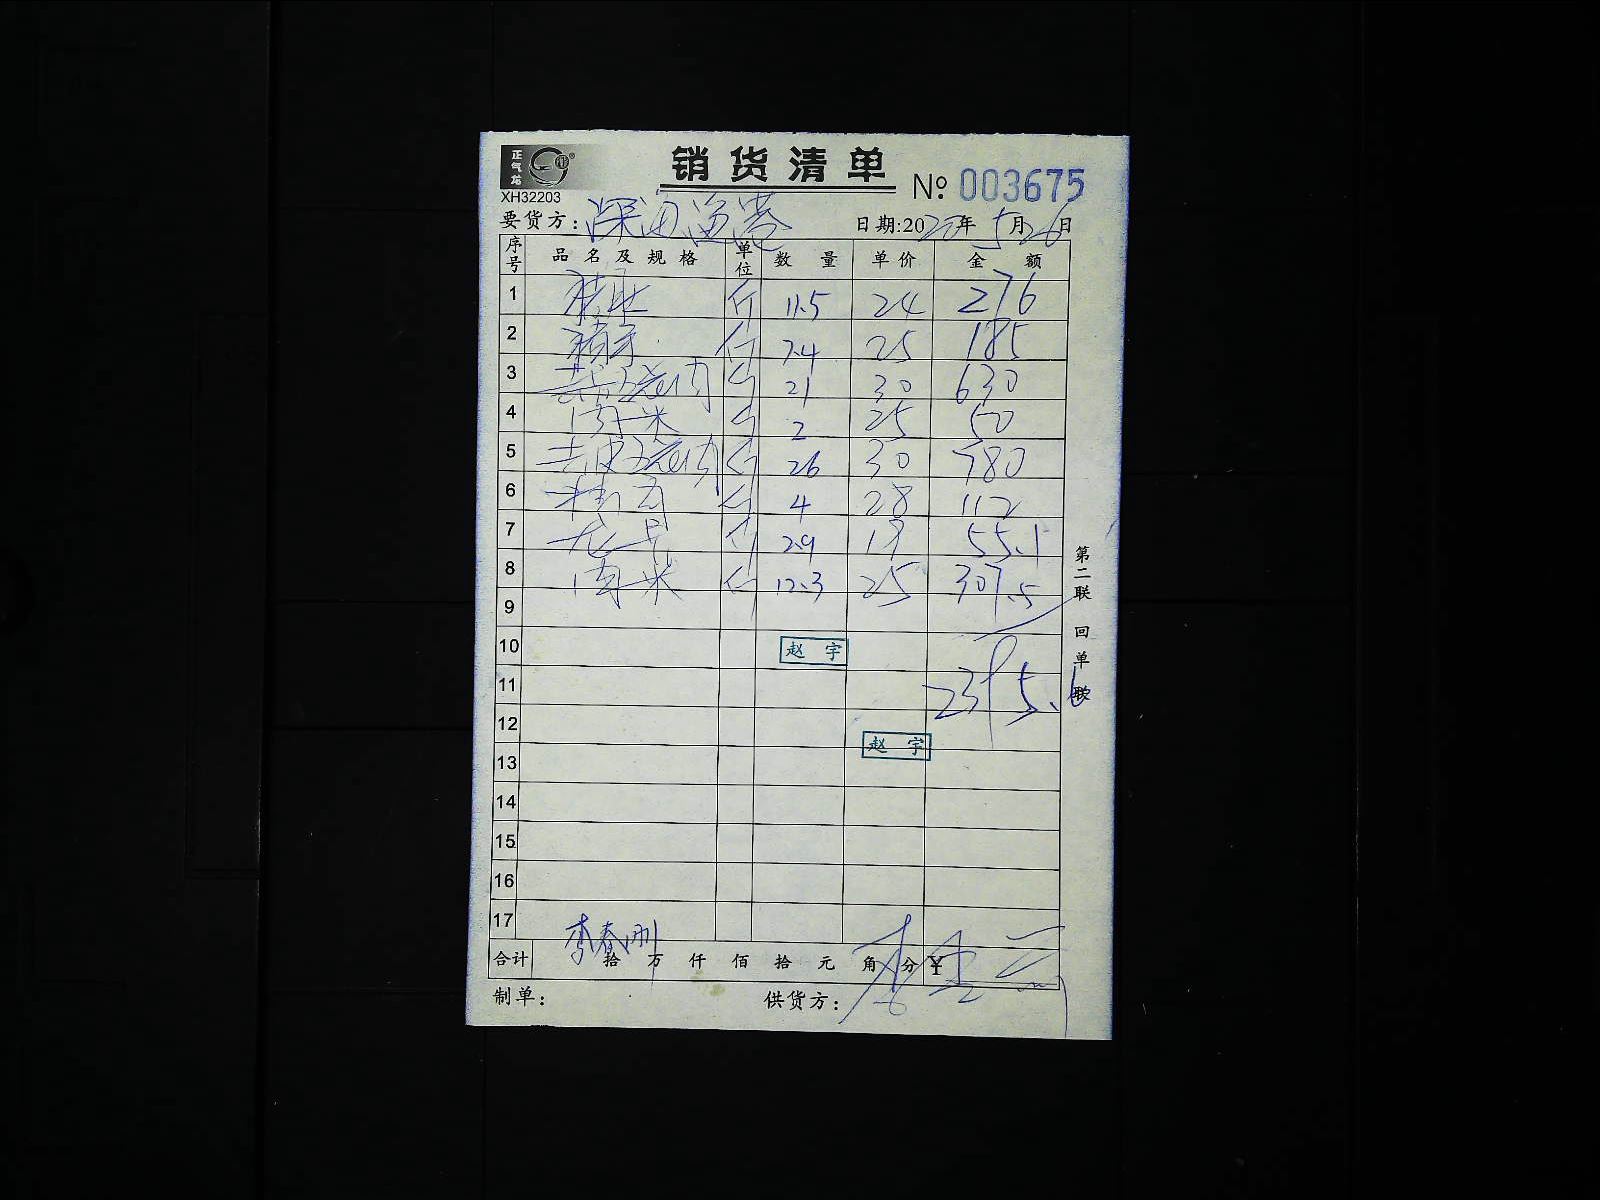 正气龙
销货清单
XH32203
№ 003675
要货方: 深田渔港
日期:2020年5月26日
序号 品名及规格 单位 数量 单价 金额
1 猪肚 斤 11.5 24 276
2 猪手 斤 7.4 25 185
3 去皮五花肉 斤 21 30 630
4 肉米 斤 2 25 50
5 去皮五花肉 斤 26 30 780
6 斤 4 28 112
7 龙骨 斤 2.9 19 55.1
8 肉米 斤 12.3 25 307.5
9
10 赵宇
11 2395.6
12
13 赵宇
14
15
16
17
李春刚
合计 拾 万 仟 佰 拾 元 角 分 ¥
制单: 供货方:
第二联 回单联